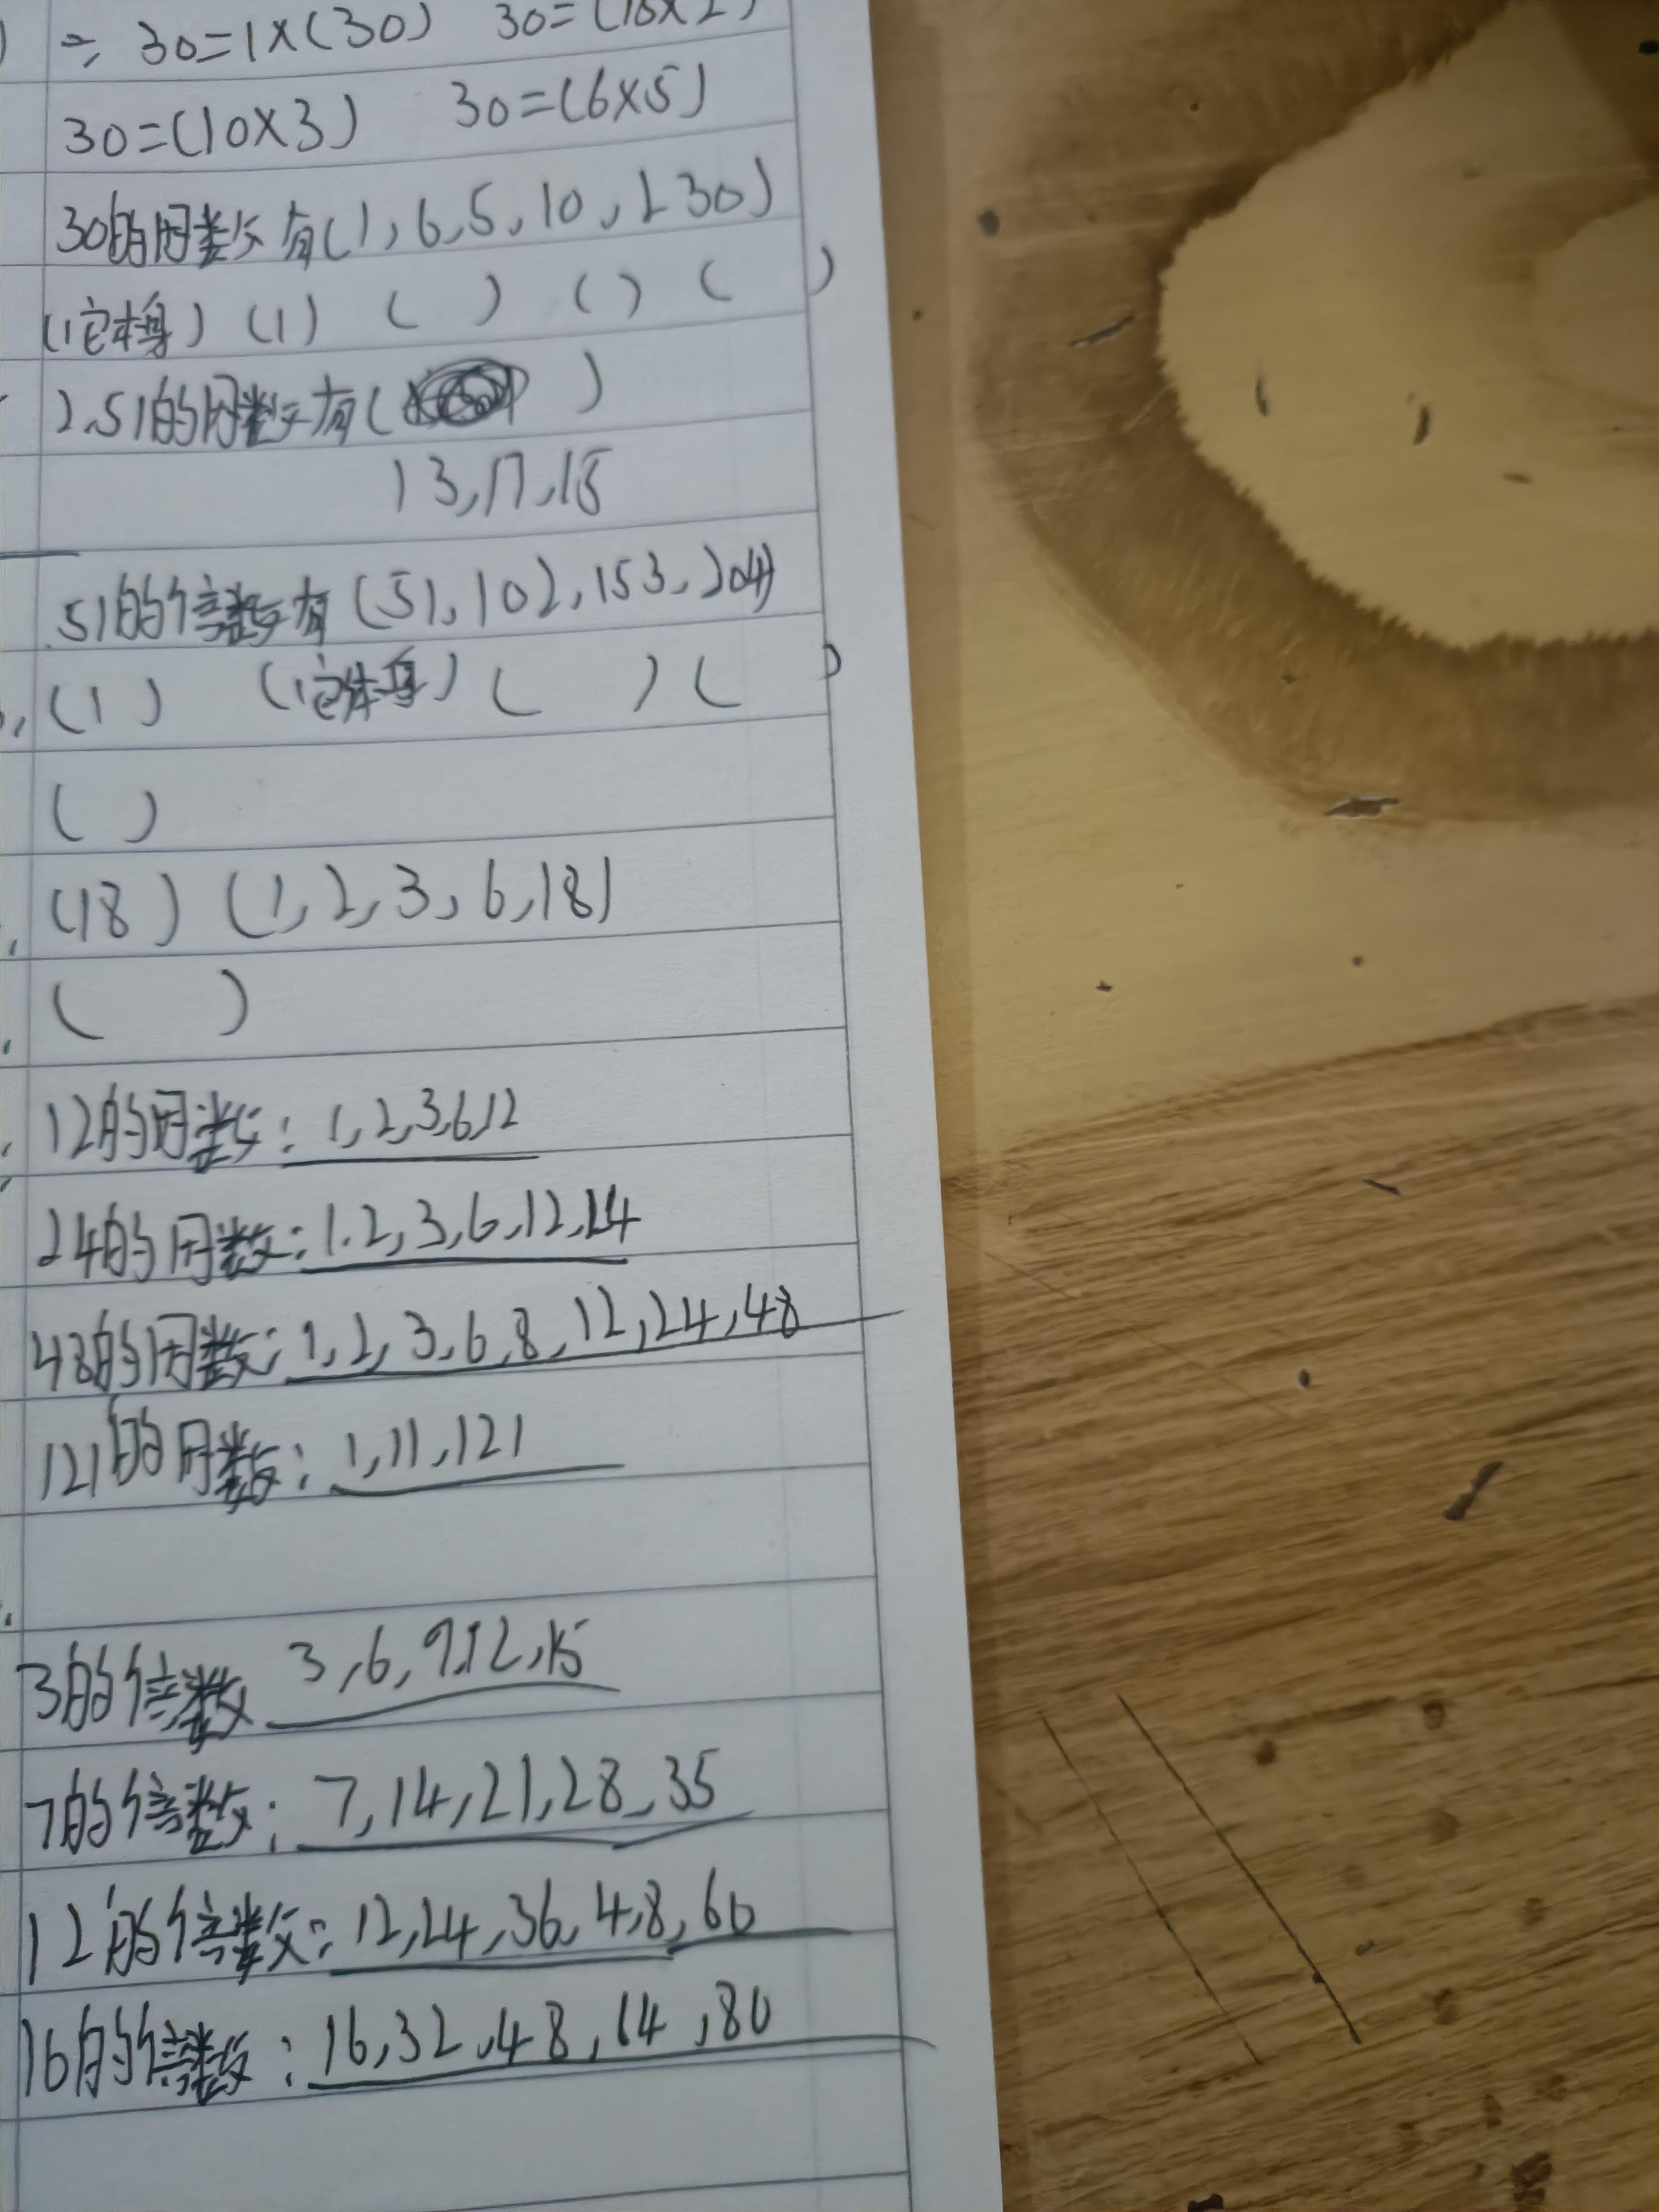 二, 30=1×(30) 30=(15×2)
30=(10×3) 30=(6×5)
30的因数有(1,6,5,10,2 30)
(它本身) (1) ( ) ( ) ( )
2.51的因数有( )
1 3,17,15
51的倍数有(51,102,153,204)
(1) (它本身) ( ) ( )
( )
(18) (1,2,3,6,18)
( )
12的因数:1,2,3,6,12
24的因数:1.2,3,6,12,24
48的因数:1,2,3,6,8,12,24,48
121的因数:1,11,121
3的倍数 3,6,9,12,15
7的倍数:7,14,21,28,35
12的倍数:12,24,36,4,8,60
16的倍数:16,32,48,64,80